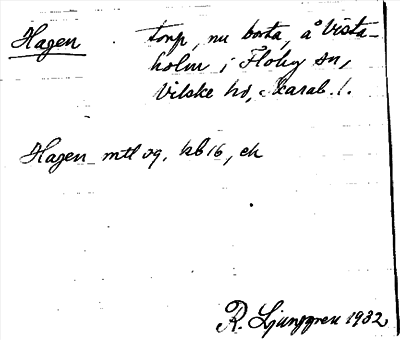 Hagen torp, nu borta, å Vista-
holm i Floby sn,
Vilske hd, Skarab. l.
Hagen mtl og. kb 16, ek
R. Ljunggren 1932